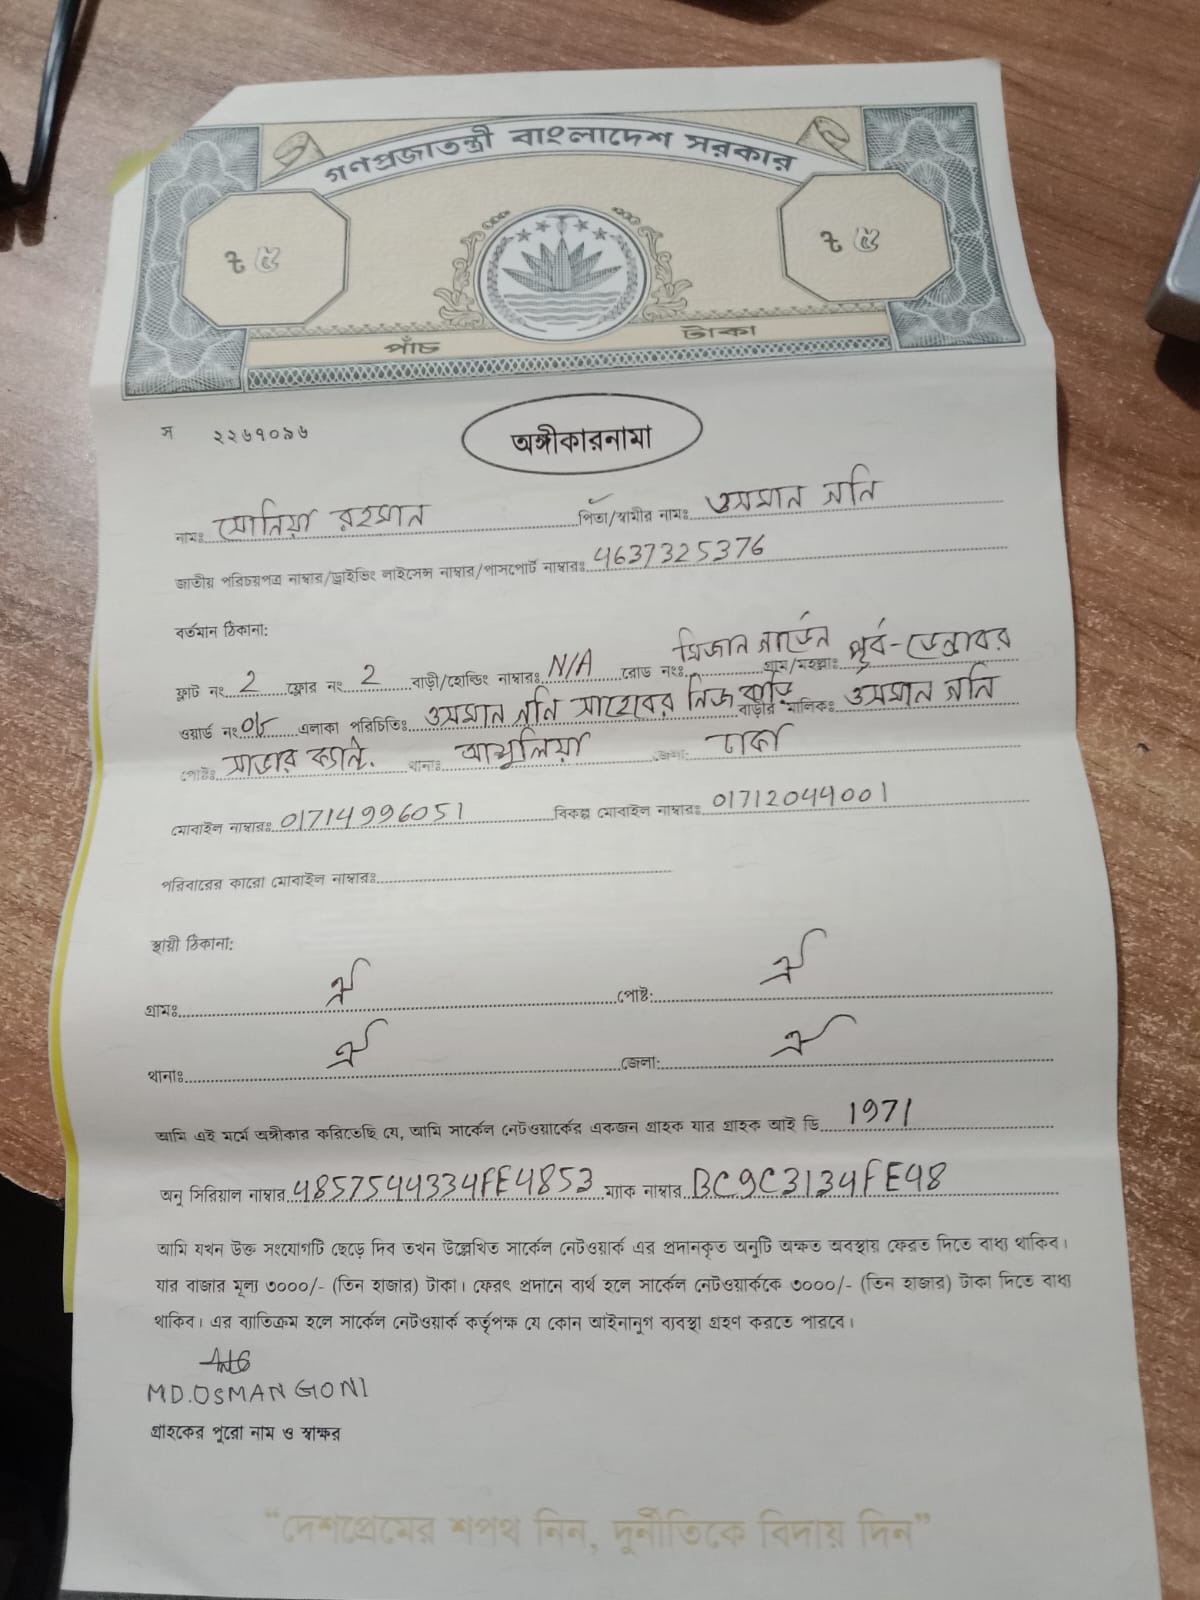 গণপ্রজাতন্ত্রী বাংলাদেশ সরকার
৳ ৫ ৳ ৫
পাঁচ টাকা
স ২২৬৭০৯৬
অঙ্গীকারনামা
নামঃ সোনিয়া রহমান পিতা/স্বামীর নামঃ ওসমান গনি
জাতীয় পরিচয়পত্র নাম্বার/ড্রাইভিং লাইসেন্স নাম্বার/পাসপোর্ট নাম্বারঃ 4637325376
বর্তমান ঠিকানা:
ফ্লাট নং 2 ফ্লোর নং 2 বাড়ী/হোল্ডিং নাম্বারঃ N/A রোড নংঃ মিজান গার্ডেন গ্রাম/মহল্লাঃ পূর্ব-ডেন্ডাবর
ওয়ার্ড নংঃ এলাকা পরিচিতিঃ ওসমান গনি সাহেবের নিজ বাড়ি বাড়ীর মালিকঃ ওসমান গনি
পোষ্টঃ সাভার ক্যান্ট. থানাঃ আশুলিয়া জেলা: ঢাকা
মোবাইল নাম্বারঃ 01714996051 বিকল্প মোবাইল নাম্বারঃ 01712044001
পরিবারের কারো মোবাইল নাম্বারঃ
স্থায়ী ঠিকানা:
গ্রামঃ ঐ পোষ্ট: ঐ
থানাঃ ঐ জেলা: ঐ
আমি এই মর্মে অঙ্গীকার করিতেছি যে, আমি সার্কেল নেটওয়ার্কের একজন গ্রাহক যার গ্রাহক আই ডি 1971
অনু সিরিয়াল নাম্বার 4857544334FE4853 ম্যাক নাম্বার BC9C3134FE48
আমি যখন উক্ত সংযোগটি ছেড়ে দিব তখন উল্লেখিত সার্কেল নেটওয়ার্ক এর প্রদানকৃত অনুটি অক্ষত অবস্থায় ফেরত দিতে বাধ্য থাকিব।
যার বাজার মূল্য ৩০০০/- (তিন হাজার) টাকা। ফেরৎ প্রদানে ব্যর্থ হলে সার্কেল নেটওয়ার্ককে ৩০০০/- (তিন হাজার) টাকা দিতে বাধ্য
থাকিব। এর ব্যাতিক্রম হলে সার্কেল নেটওয়ার্ক কর্তৃপক্ষ যে কোন আইনানুগ ব্যবস্থা গ্রহণ করতে পারবে।
MD.OSMAN GONI
গ্রাহকের পুরো নাম ও স্বাক্ষর
"দেশপ্রেমের শপথ নিন, দুর্নীতিকে বিদায় দিন"